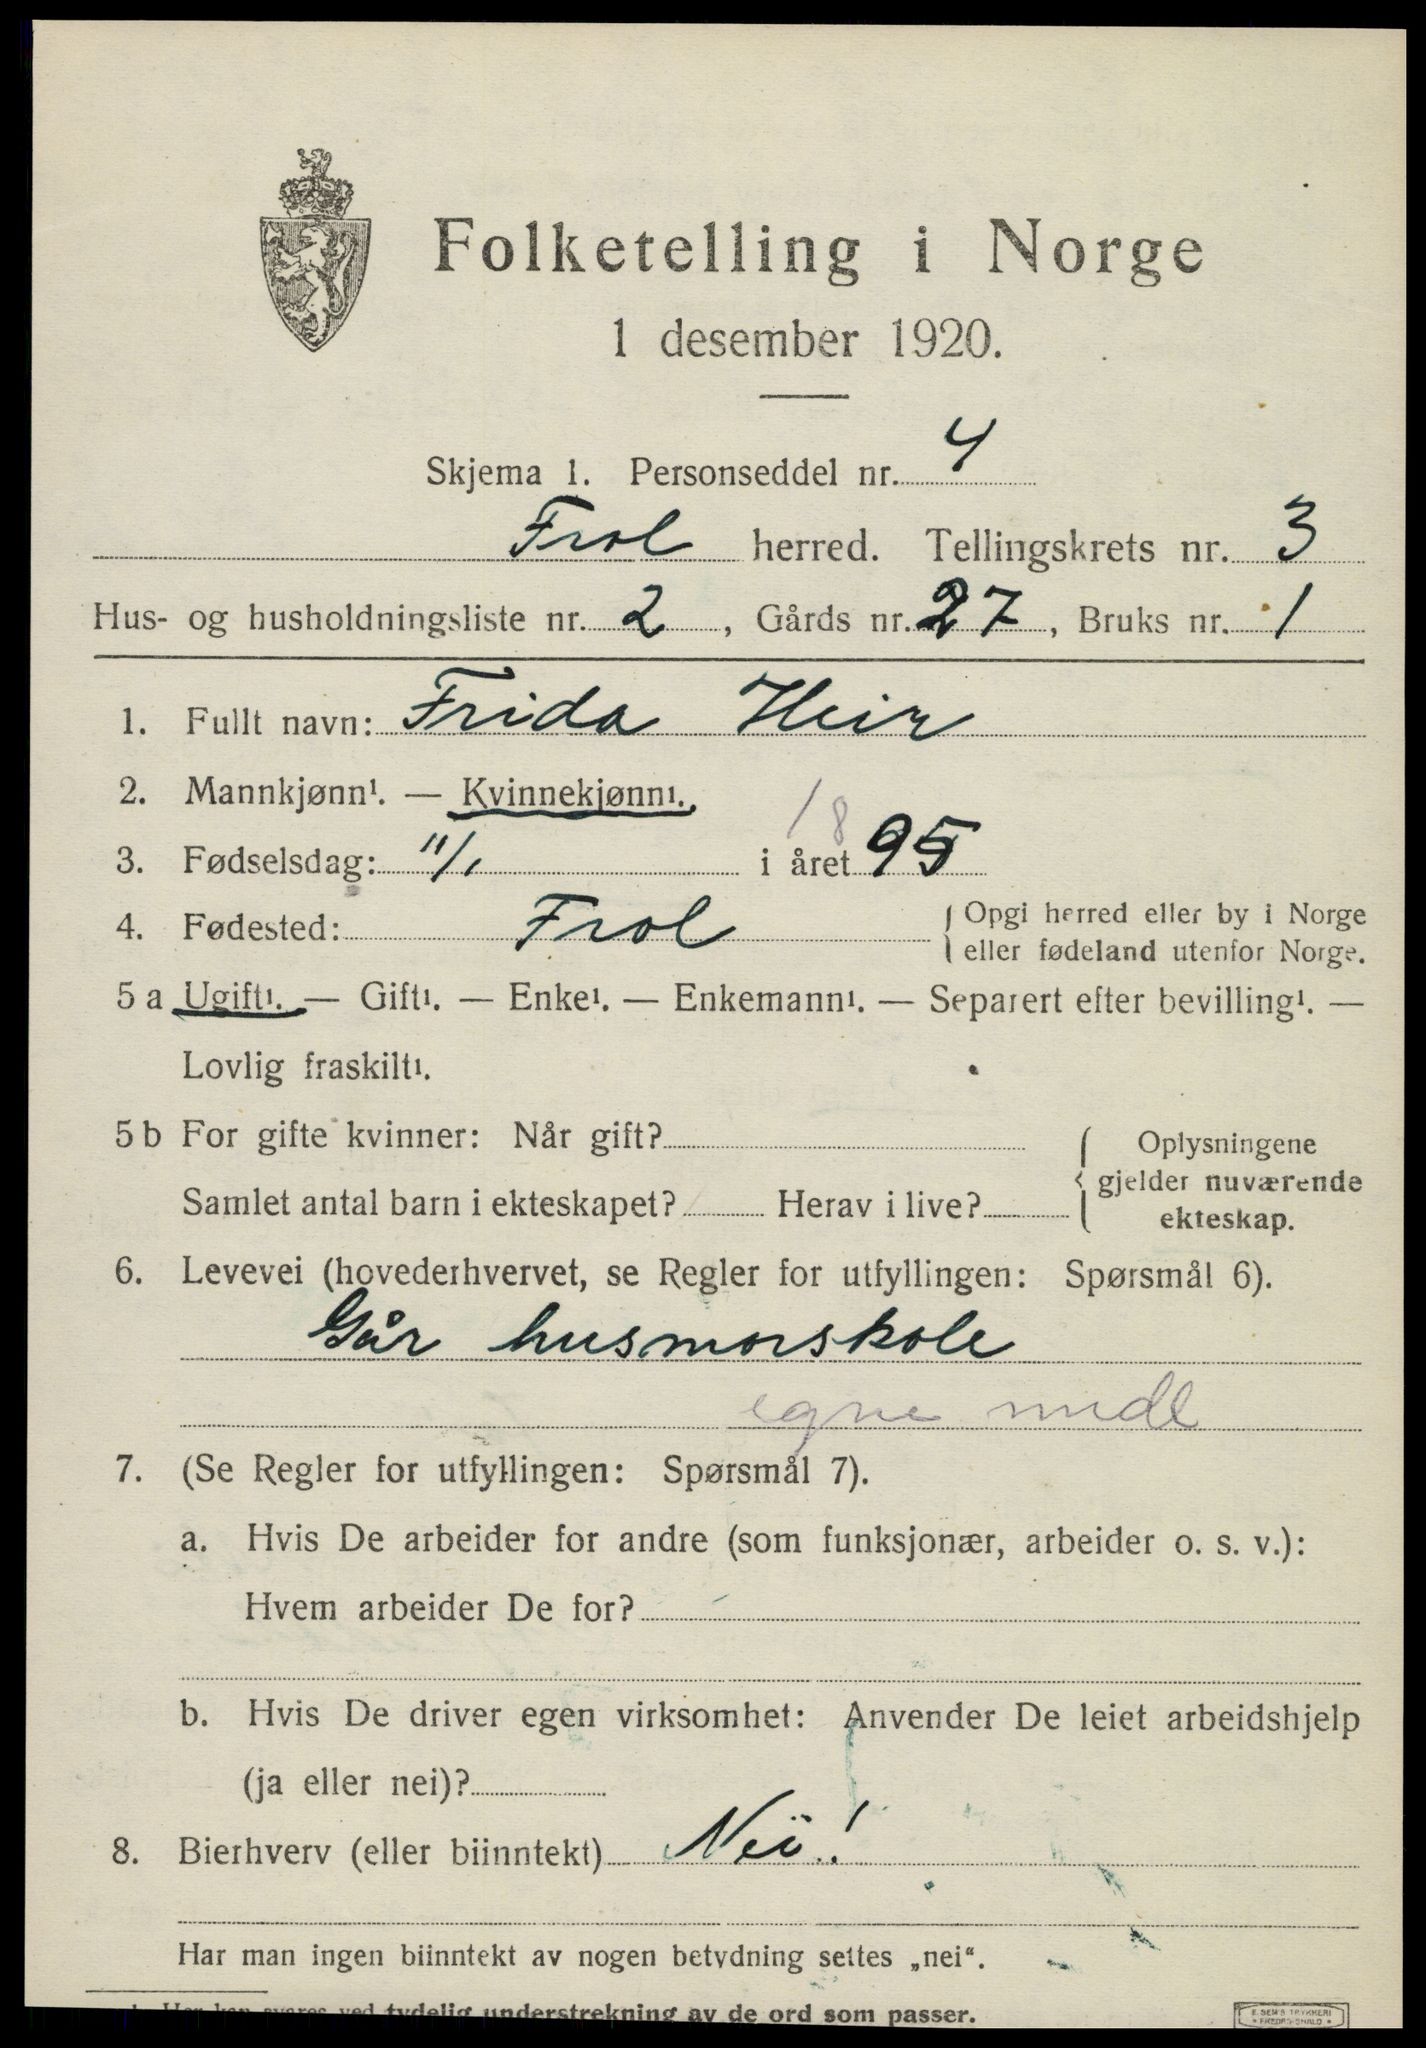 Folketelling i Norge
1 desember 1920.
Skjema 1. Personseddel nr. 4
Frol herred. Tellingskrets nr. 3
Hus- og husholdningsliste nr. 2, Gårds nr. 27, Bruks nr. 1
1. Fullt navn: Frida Heir
2. Mannkjønn¹. — Kvinnekjønn¹.
3. Fødselsdag: 11/1 i året 1895
4. Fødested: Frol { Opgi herred eller by i Norge
eller fødeland utenfor Norge.
5 a Ugift¹. — Gift¹. — Enke¹. — Enkemann¹. — Separert efter bevilling¹. —
Lovlig fraskilt¹.
5 b For gifte kvinner: Når gift?
Samlet antal barn i ekteskapet? Herav i live? { Oplysningene
gjelder nuværende
ekteskap.
6. Levevei (hovederhvervet, se Regler for utfyllingen: Spørsmål 6).
Går husmorskole
egne midl
7. (Se Regler for utfyllingen: Spørsmål 7).
a. Hvis De arbeider for andre (som funksjonær, arbeider o. s. v.):
Hvem arbeider De for?
b. Hvis De driver egen virksomhet: Anvender De leiet arbeidshjelp
(ja eller nei)?
8. Bierhverv (eller biinntekt) Nei!
Har man ingen biinntekt av nogen betydning settes „nei“.
1 Her kan svares ved tydelig understrekning av de ord som passer.
E. SEM'S TRYKKERI